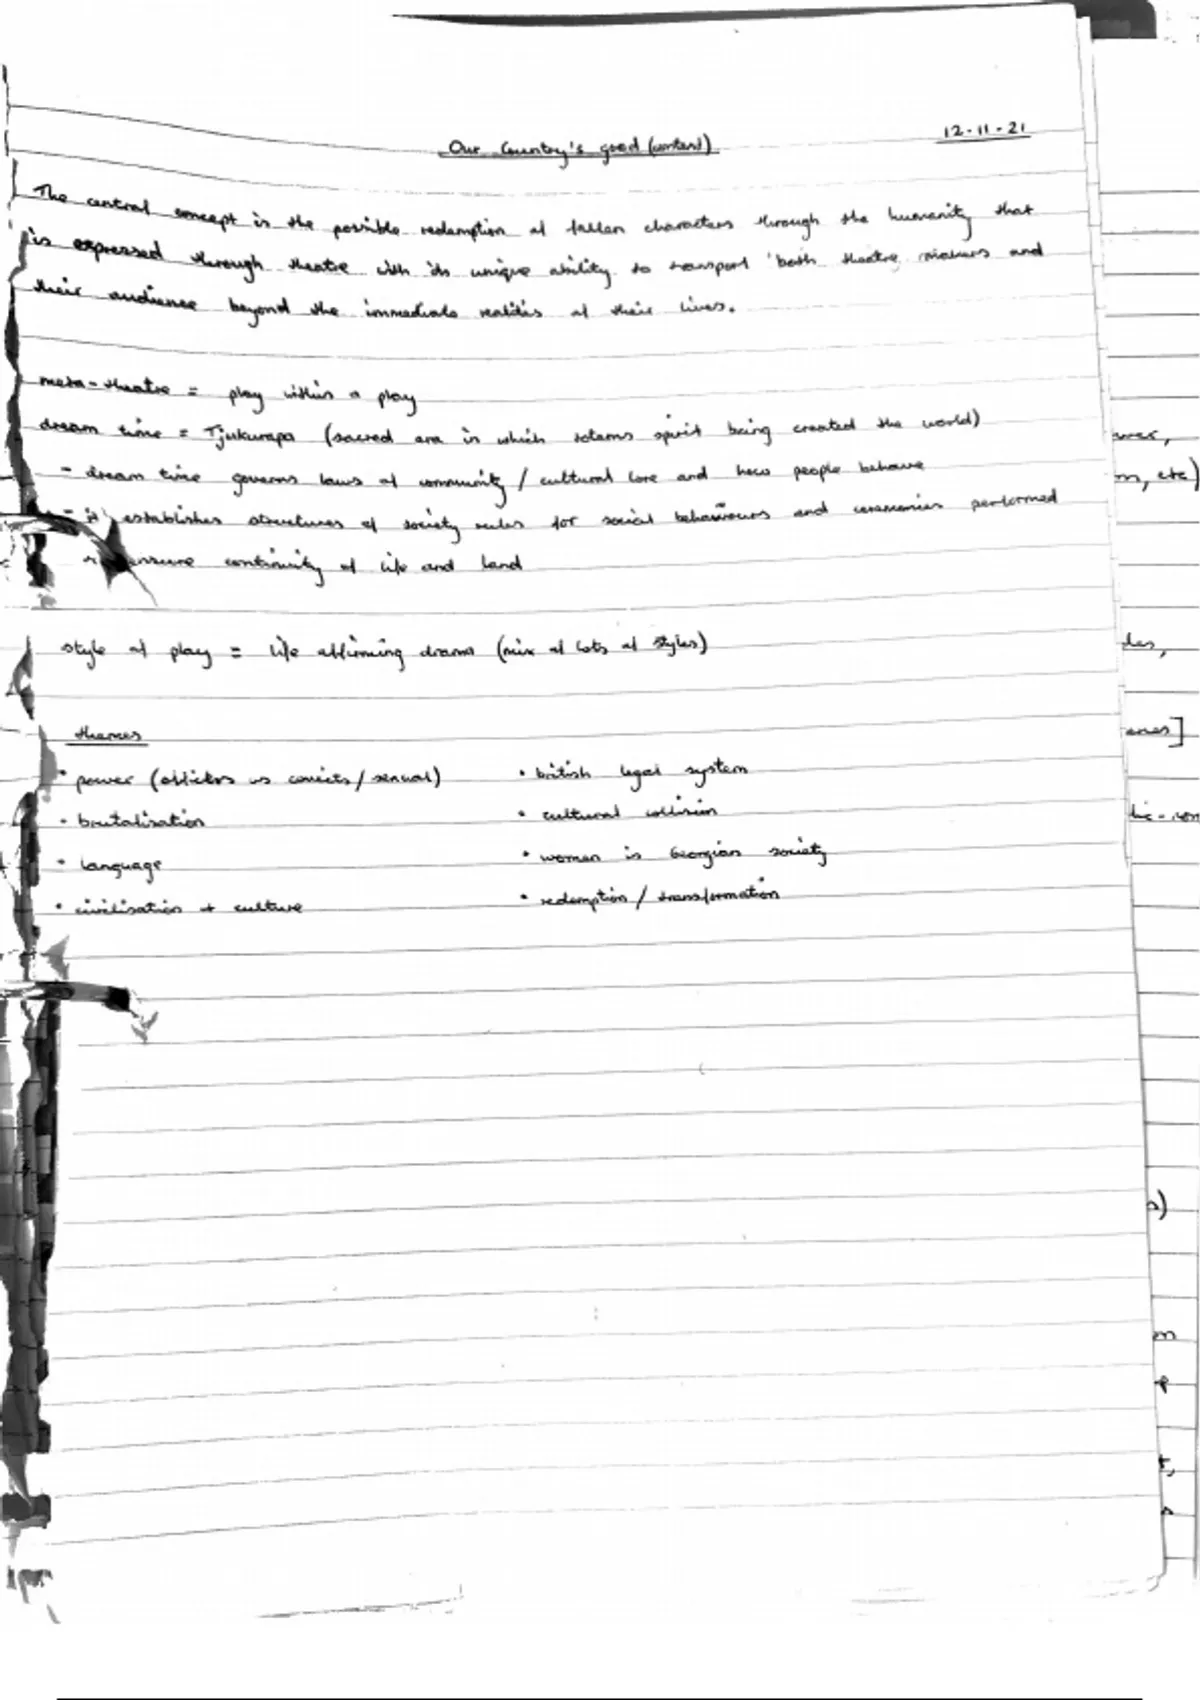 Our Country's good (context)
12-11-21
The central concept is the possible redemption of fallen characters through the humanity that
is expressed through theatre with its unique ability to transport both theatre makers and
their audience beyond the immediate realities of their lives.
meta-theatre = play within a play
dream time = Tjukurapa (sacred era in which totems spirit being created the world)
- dream time governs laws of community / cultural lore and how people behave
- it establishes structures of society rules for social behaviours and ceremonies performed
ensure continuity of life and land
style of play = life affirming drama (mix of lots of styles)
themes
• power (officers vs convicts / sexual)
• brutalisation
• language
• civilisation + culture
• british legal system
• cultural collision
• women is Georgian society
• redemption / transformation
etc)